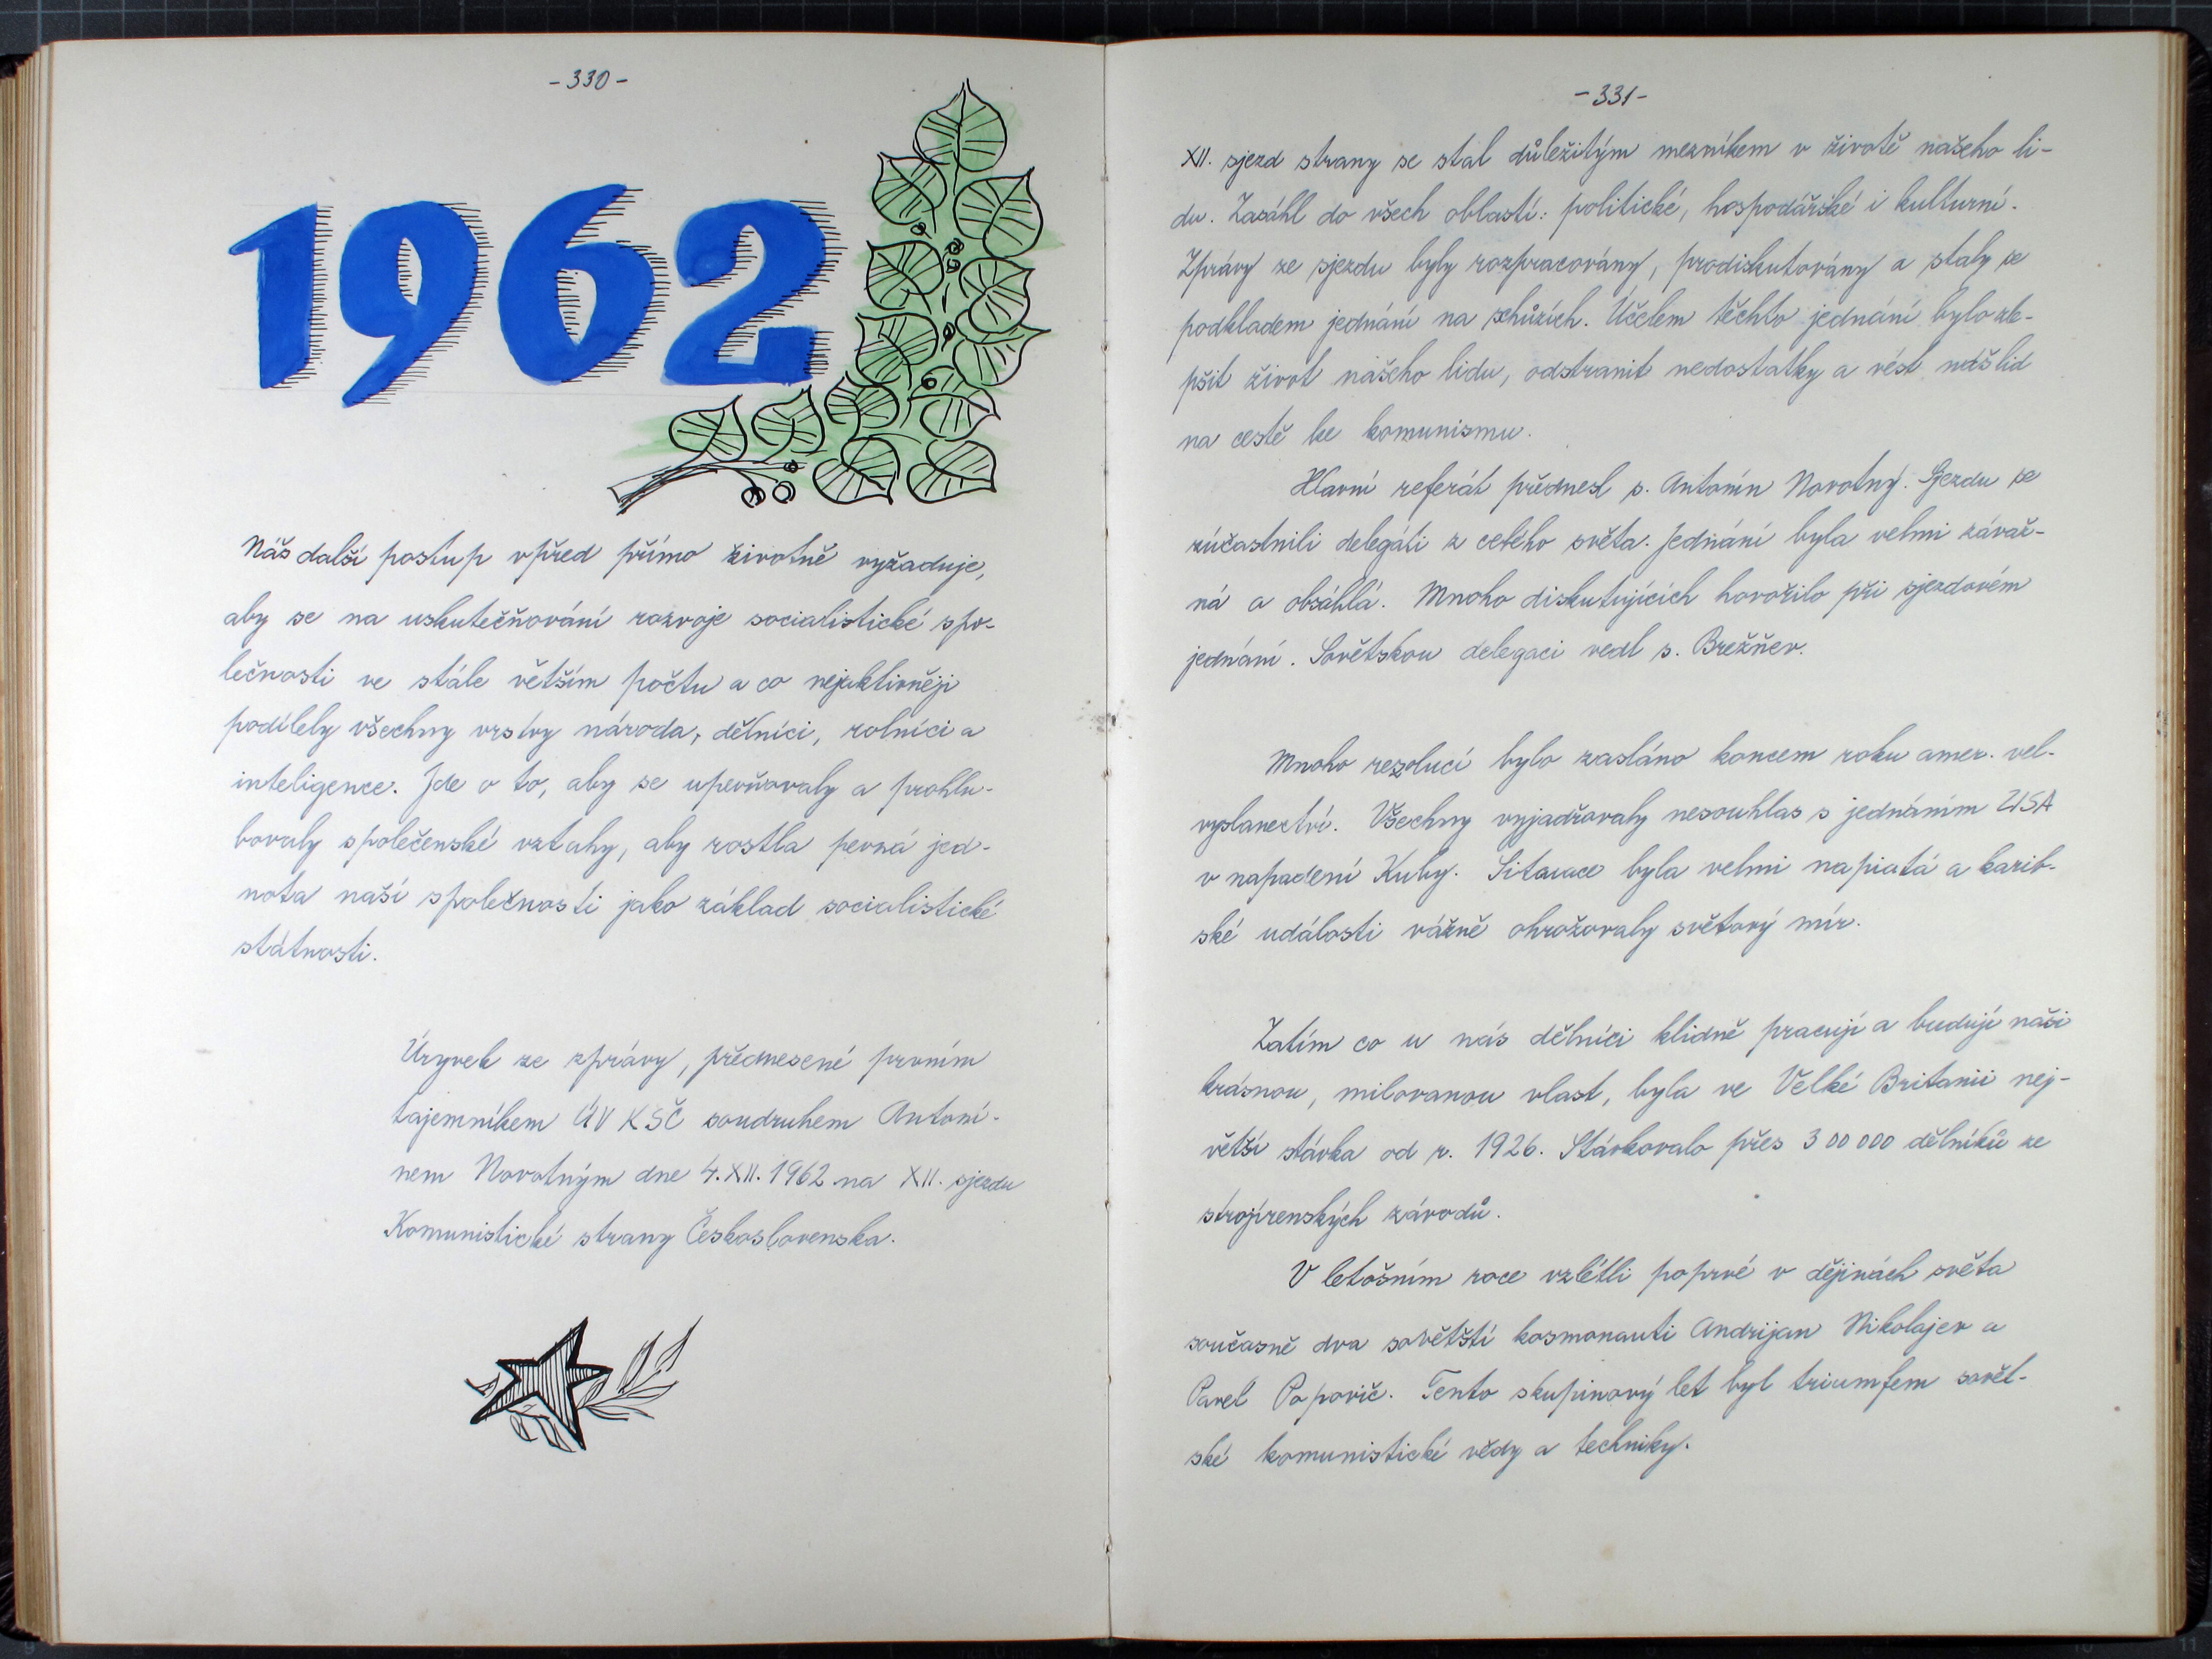 -330-
1962
Náš další postup vpřed přímo životně vyžaduje,
aby se na uskutečňování rozvoje socialistické spo-
lečnosti ve stále větším počtu a co nejaktivněji
podílely všechny vrstvy národa, dělníci, rolníci a
inteligence. Jde o to, aby se upevňovaly a prohlu-
bovaly společenské vztahy, aby rostla pevná jed-
nota naší společnosti jako základ socialistické
státnosti.
Úryvek ze zprávy, přednesené prvním
tajemníkem ÚV KSČ soudruhem Antoní-
nem Novotným dne 4.XII.1962 na XII. sjezdu
Komunistické strany Československa.
-331-
XII. sjezd strany se stal důležitým mezníkem v životě našeho li-
du. Zasáhl do všech oblastí: politické, hospodářské i kulturní.
Zprávy ze sjezdu byly rozpracovány, prodiskutovány a staly se
podkladem jednání na schůzích. Účelem těchto jednání bylo zle-
pšit život našeho lidu, odstranit nedostatky a vést náš lid
na cestě ke komunismu.
Hlavní referát přednesl s. Antonín Novotný. Sjezdu se
zúčastnili delegáti z celého světa. Jednání byla velmi závaž-
ná a obsáhlá. Mnoho diskutujících hovořilo při sjezdovém
jednání. Sovětskou delegaci vedl s. Brežňev.
Mnoho rezolucí bylo zasláno koncem roku amer. vel-
vyslanectví. Všechny vyjadřovaly nesouhlas s jednáním USA
v napadení Kuby. Situace byla velmi napiatá a karib-
ské události vážně ohrožovaly světový mír.
Zatím co u nás dělníci klidně pracují a budují naši
krásnou, milovanou vlast, byla ve Velké Britanii nej-
větší stávka od r. 1926. Stávkovalo přes 300 000 dělníků ze
strojírenských závodů.
V letošním roce vzlétli poprvé v dějinách světa
současně dva sovětští kosmonauti Andrijan Nikolajev a
Pavel Popovič. Tento skupinový let byl triumfem sovět-
ské komunistické vědy a techniky.